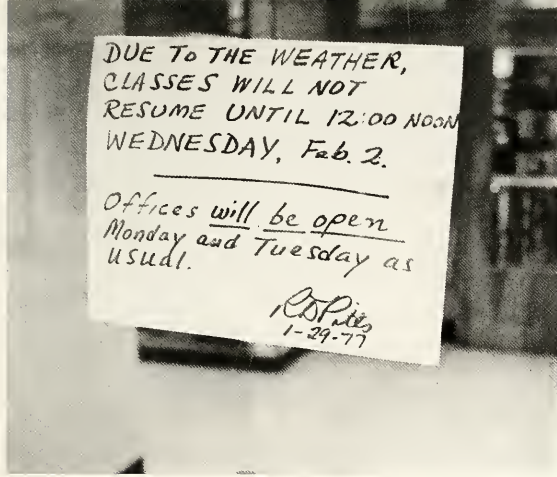 DUE TO THE WEATHER,
CLASSES WILL NOT
RESUME UNTIL 12:00 NOON
WEDNESDAY, Feb. 2.
Offices will be open
Monday and Tuesday as
usual.
RD Pitts
1-29-77